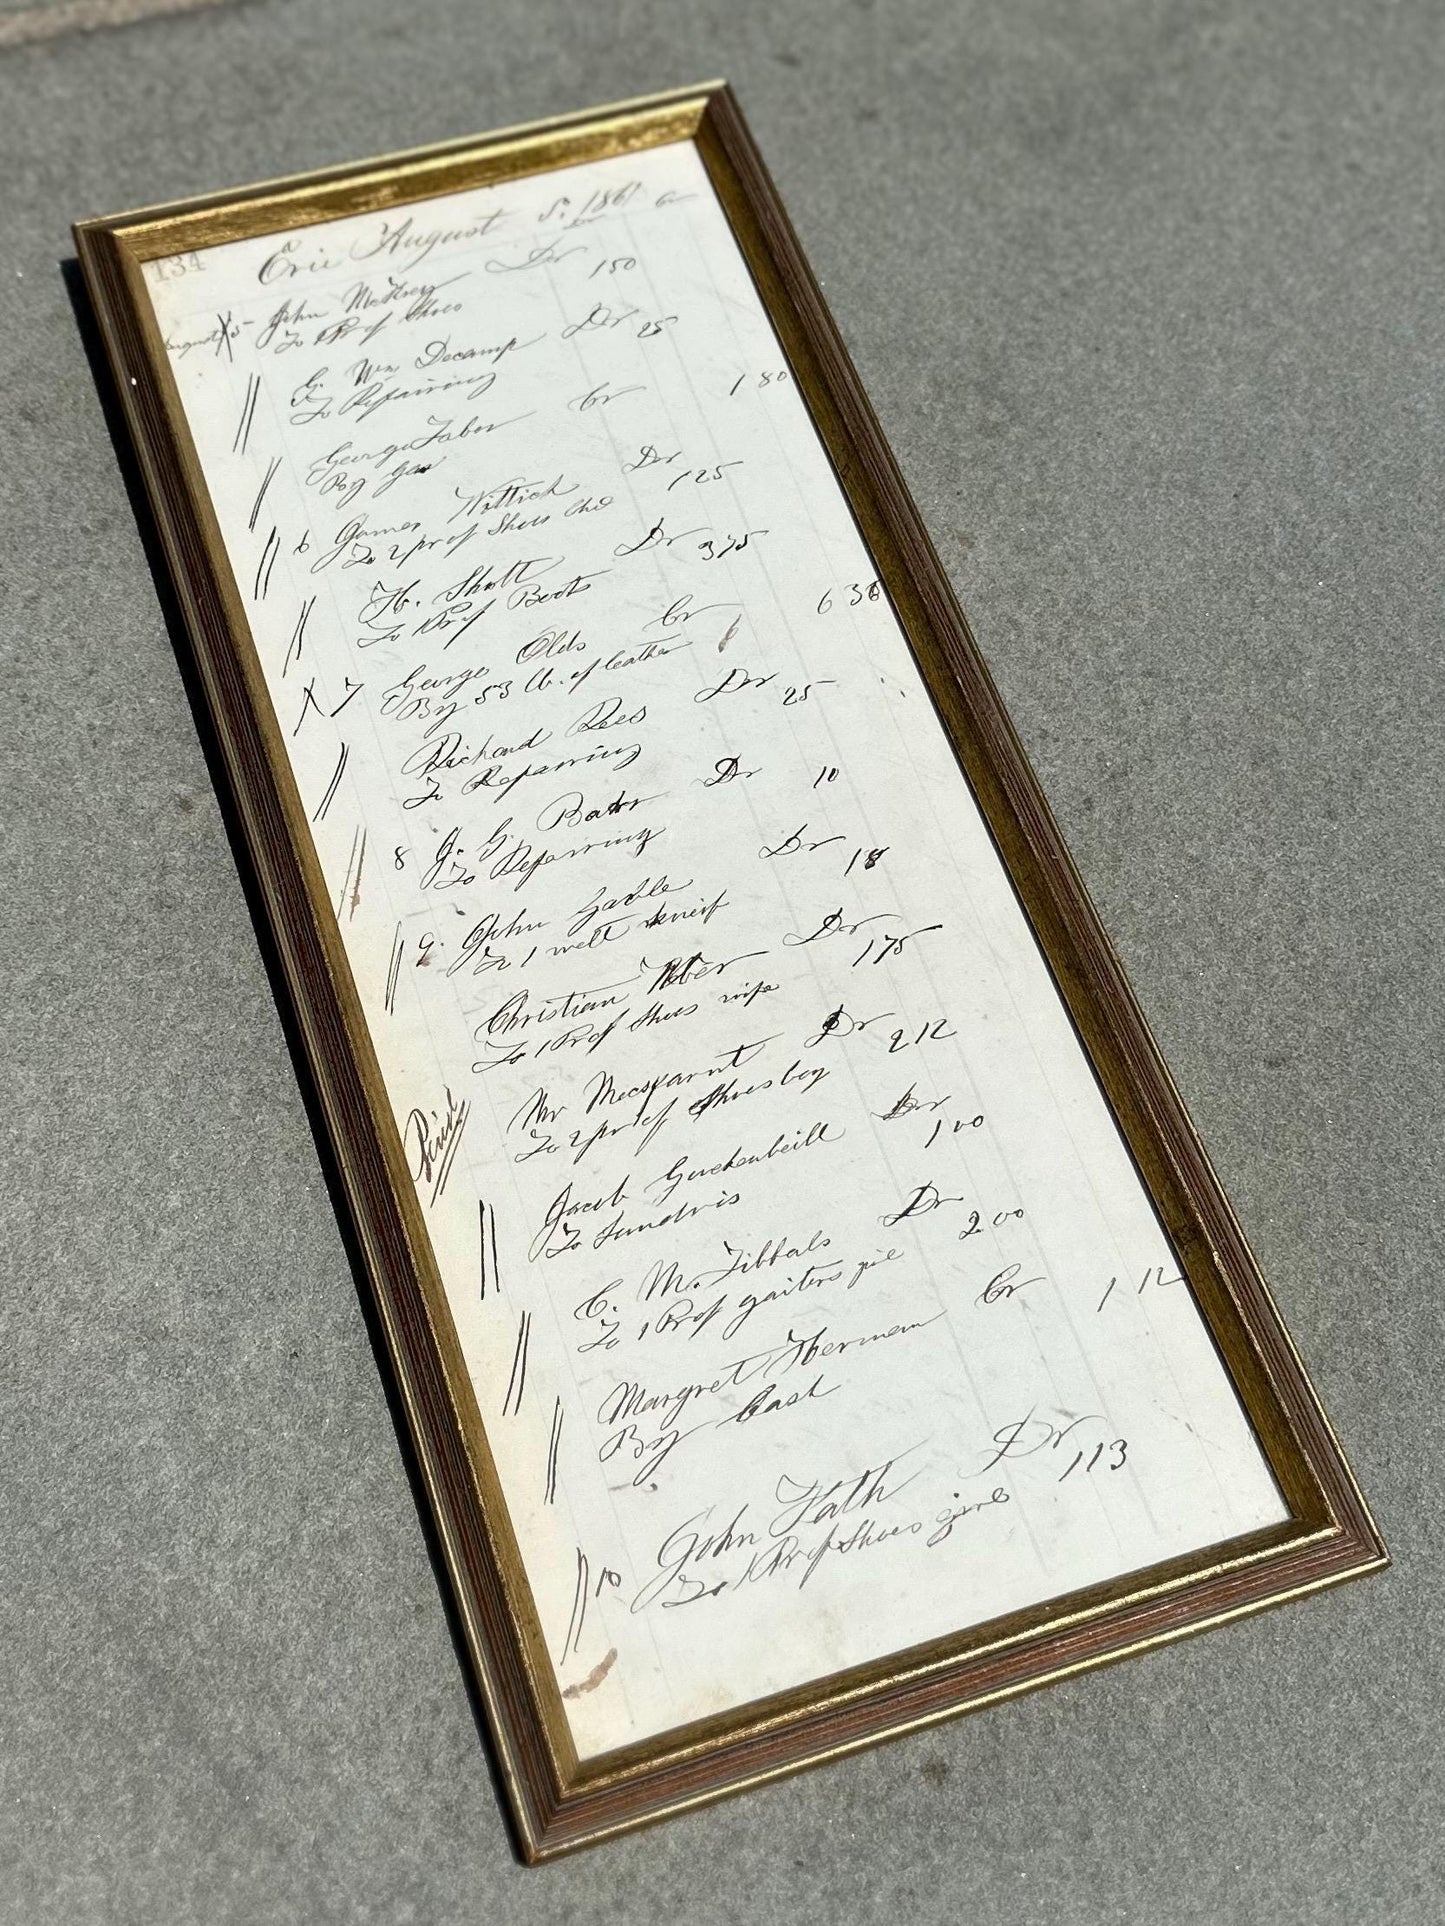 134
Erie August 5. 1861
Dr Cr
August 5 John Dr
To 1 Pr of Shoes 150
G. Wm Decamp Dr
To Repairing 25
George Tabor Cr
By Gas 1 80
6 James Wittich Dr
To 2 pr of Shoes Chd 125
H. Shott Dr
To 1 Pr of Boots 375
7 George Olds Cr
By 53 lb. of leather 6 36
Richard Rees Dr
To Repairing 25
8 J. G. Dr
To Repairing 10
9. John Gable Dr
To 1 welt kneif 18
Christian Dr
To 1 Pr of Shoes wife 175
Mr Dr
To 2 pr of Shoes boy 212
Paid
Jacob Dr
To Sundris 1 00
C. M. Tibbals Dr
To 1 Pr of gaiters 2 00
Margret Herman Cr
By Cash 1 12
10 John Fath Dr
To 1 Pr of Shoes girls 113